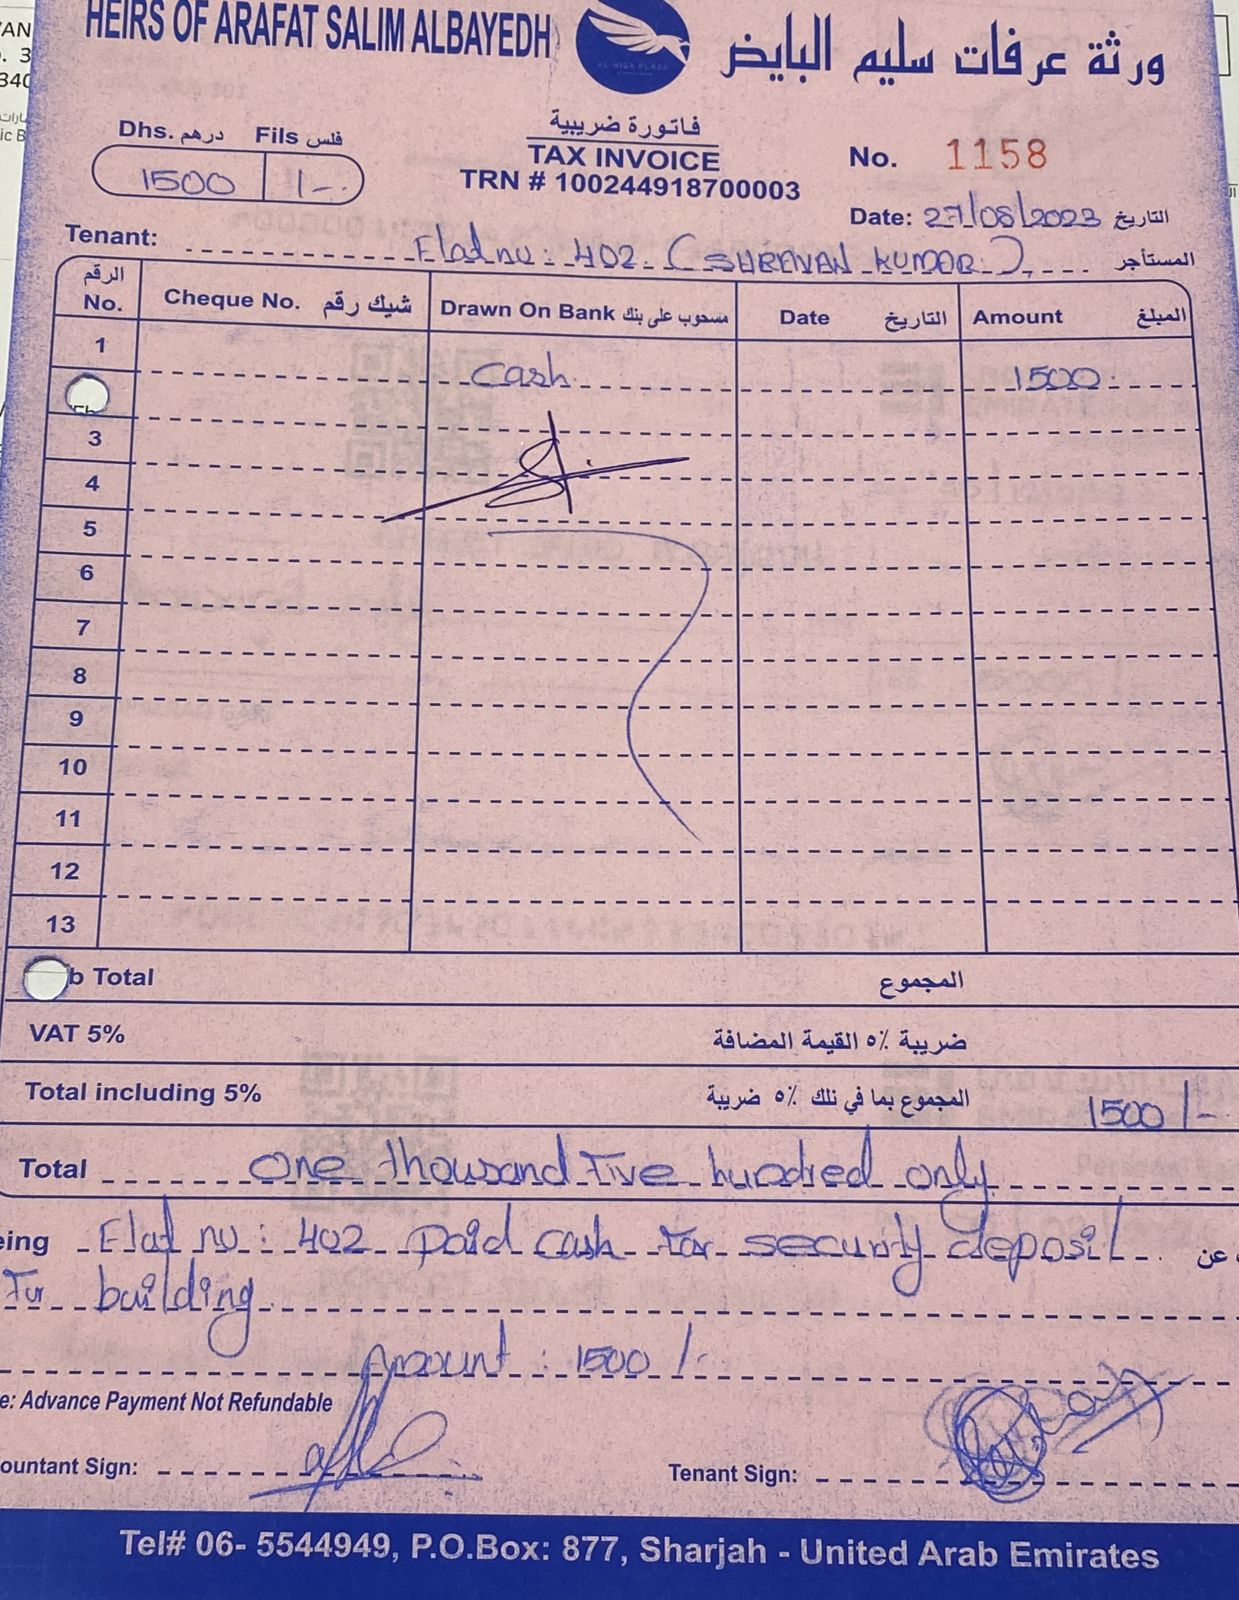 HEIRS OF ARAFAT SALIM ALBAYEDH
ورثة عرفات سليم البايض
AL NISR PLAZA
Dhs. درهم Fils فلس
1500 /-
فاتورة ضريبية
TAX INVOICE
TRN # 100244918700003
No. 1158
Date: 27/08/2023 التاريخ
Tenant: Flat no: 402 (SHRAVAN KUMAR) المستأجر
الرقم No. Cheque No. شيك رقم Drawn On Bank مسحوب على بنك Date التاريخ Amount المبلغ
1 Cash 1500
3
4
5
6
7
8
9
10
11
12
13
b Total المجموع
VAT 5% ضريبة ٥٪ القيمة المضافة
Total including 5% المجموع بما في ذلك ٥٪ ضريبة 1500/-
Total one thousand Five hundred only
eing Flat no: 402 paid cash for security deposit عن
For building
Amount: 1500/-
e: Advance Payment Not Refundable
ountant Sign:
Tenant Sign:
Tel# 06- 5544949, P.O.Box: 877, Sharjah - United Arab Emirates